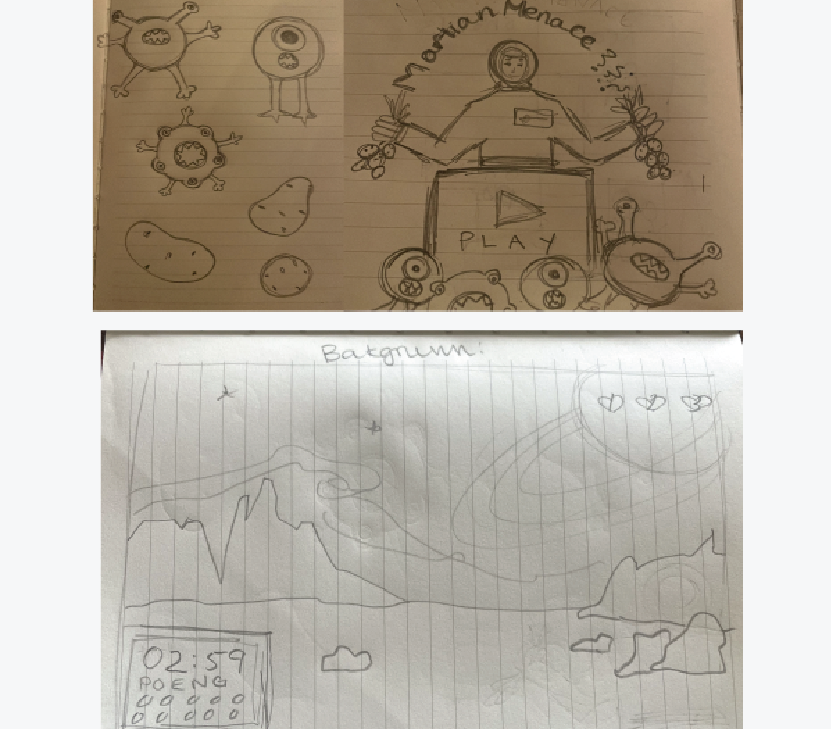 Martian Menace
PLAY
Bakgrunn:
02:59
POENG
0 0 0 0 0
0 0 0 0 0